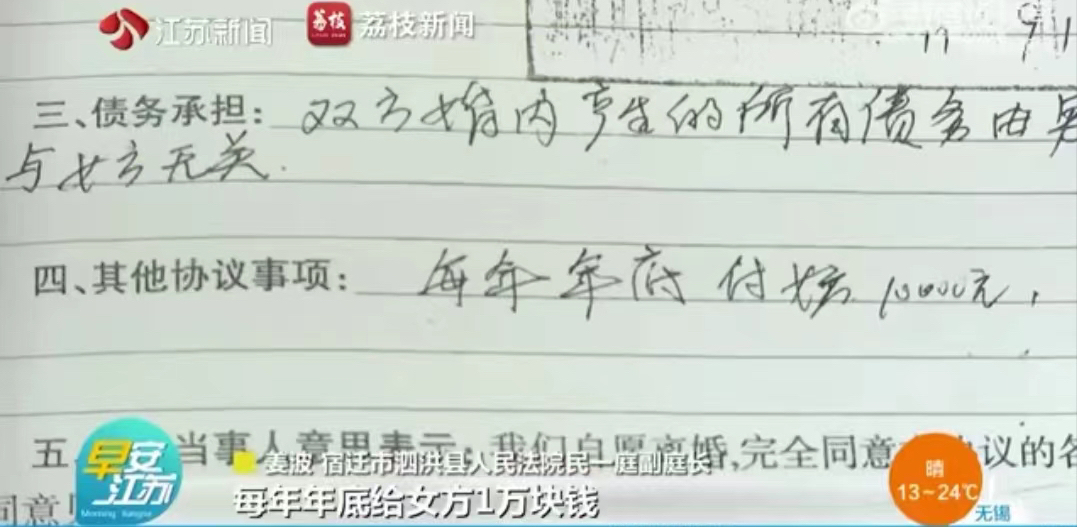 江苏新闻 荔枝 荔枝新闻
三、债务承担：双方婚内产生的所有债务由男
与女方无关.
四、其他协议事项：每年年底付女方10000元，
五、当事人意思表示：我们自愿离婚,完全同意本协议的各
同意
早安江苏
Morning Jiangsu
姜波 宿迁市泗洪县人民法院民一庭副庭长
每年年底给女方1万块钱
晴
13~24℃
无锡